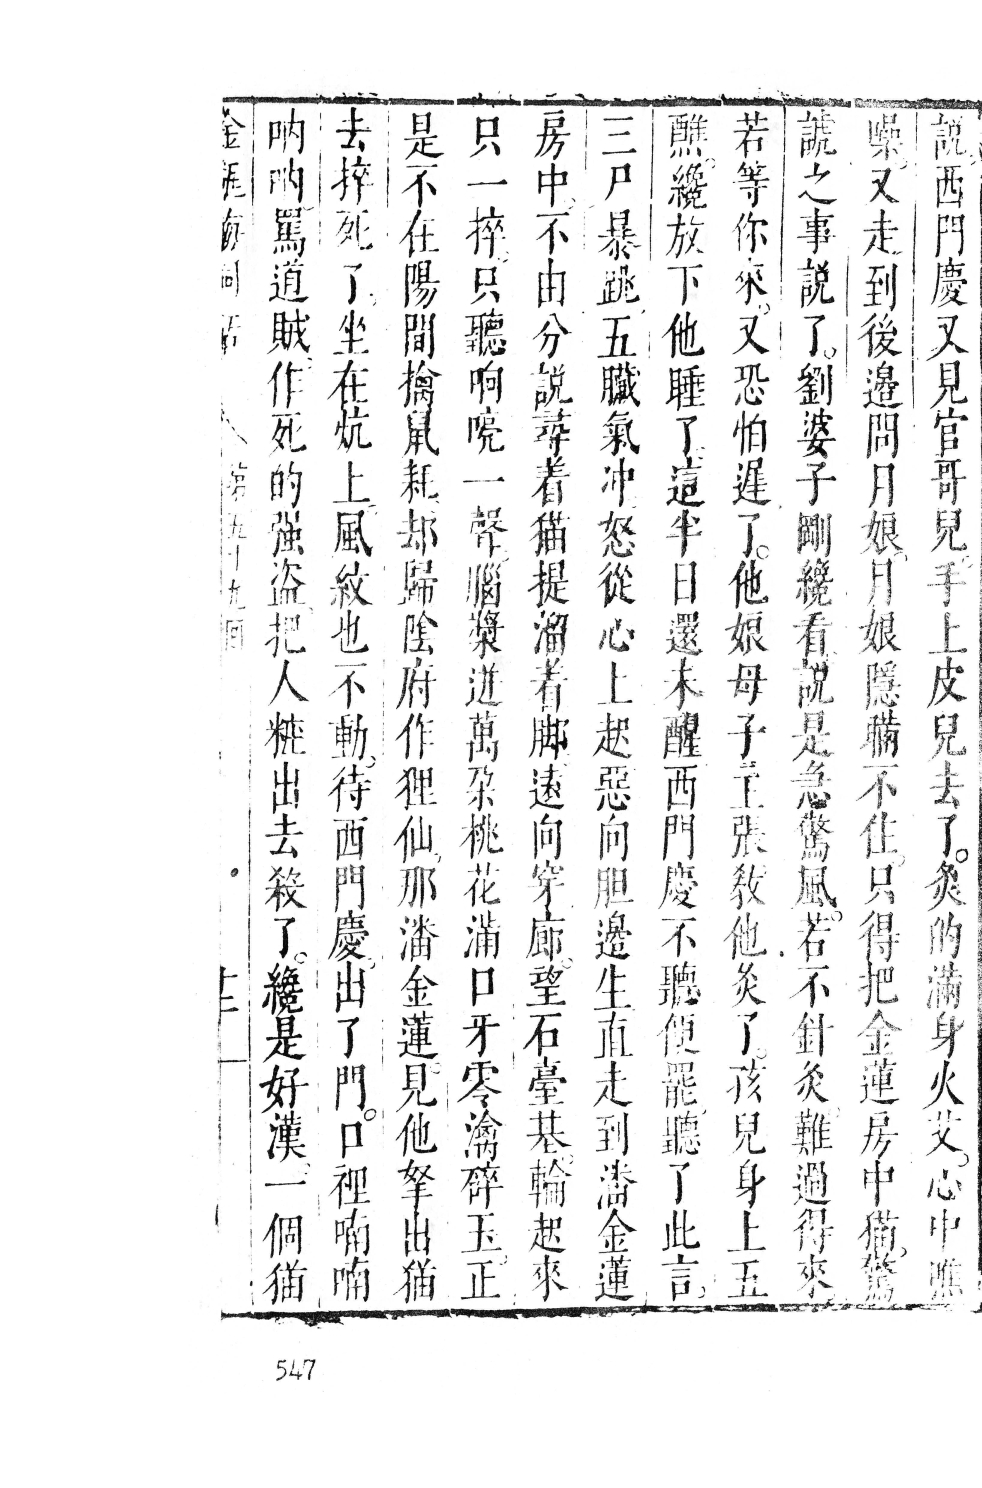 説西門慶又見官哥兒。手上皮兒去了。灸的滿身火艾。心中㷛
噪。又走到後邊問月娘。月娘隱瞞不住。只得把金蓮房中猫。驚
諕之事説了。劉婆子剛纔看。説是急驚風。若不針灸難過得來。
若等你來。又恐怕遲了。他娘母子主張。教他灸了。孩兒身上五
醮。纔放下他睡了。這半日還未醒。西門慶不聽便罷。聽了此言。
三尸暴跳。五臟氣冲。怒從心上起。惡向胆邊生。直走到潘金蓮
房中。不由分説。尋着猫提溜着脚。遠向穿廊。望石臺基。輪起來
只一捽。只聽响喨一聲。腦漿迸萬朶桃花。滿口牙零㵝碎玉。正
是不在陽間擒鼠耗。却歸陰府作狸仙。那潘金蓮。見他拏出猫
去捽死了。坐在炕上。風紋也不動。待西門慶。出了門。口裡喃喃
吶吶。罵道賊。作死的强盗。把人粧出去殺了。纔是好漢。一個猫
金瓶梅詞話 第五十九回 十二
547